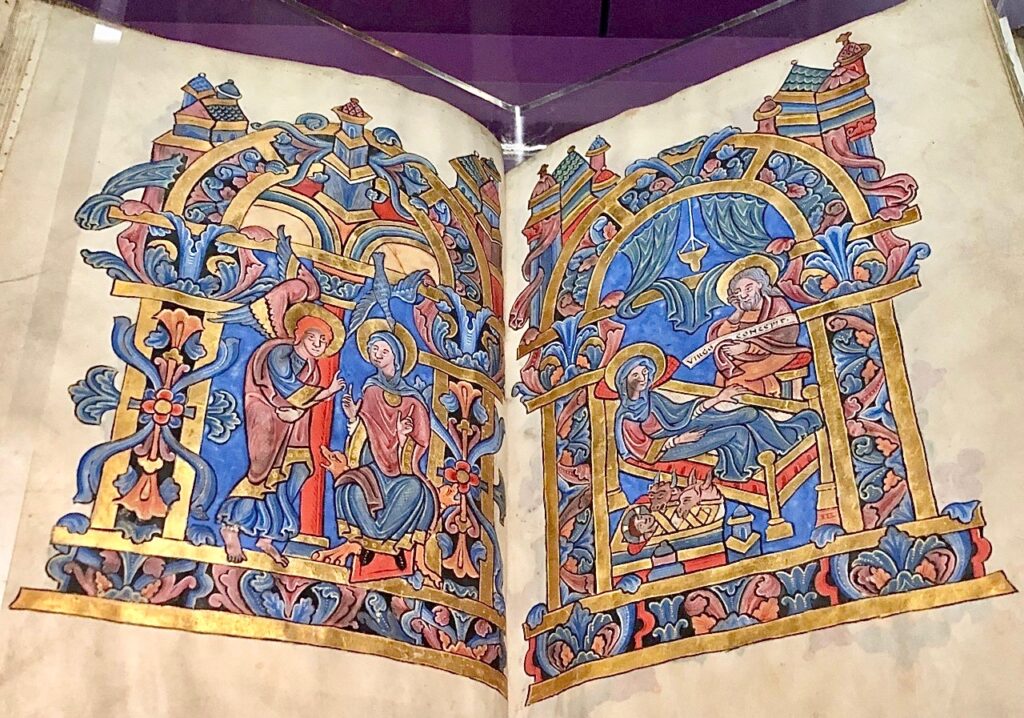 VIRGO CONCEPIT.